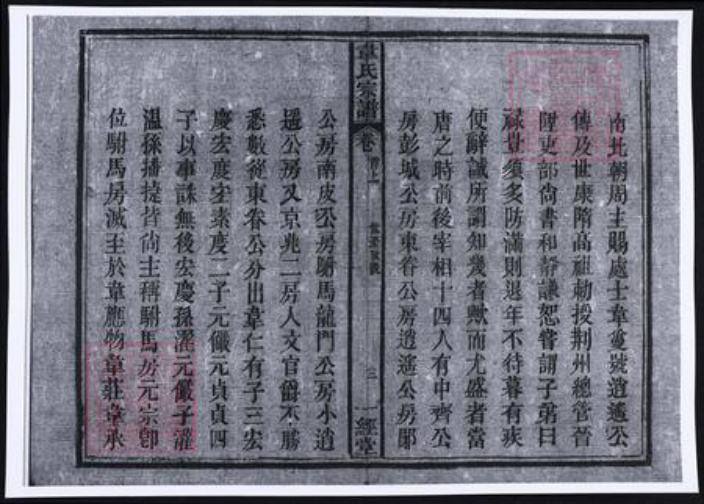 南北朝周主賜處士韋夐號逍遙公
傳及世康隋高祖勅授荆州總管晉
陞吏部尚書和靜謙恕嘗謂子弟曰
祿豈須多防滿則退年不待暮有疾
便辭誠所謂知幾者歟而尤盛者當
唐之時前後宰相十四人有中齊公
房彭城公房東眷公房逍遙公房鄖
韋氏宗譜 卷首上 三 一經堂
公房南皮公房駙馬龍門公房小逍
遙公房又京兆二房人文官爵不勝
悉數從東眷公分出韋仁有子三宏
慶宏度宏素度二子元儼元貞貞四
子以事誅無後宏慶孫濯元儼子灌
溫孫播捷皆尚主稱駙馬房元宗卽
位駙馬房滅主於韋應物韋莊韋承